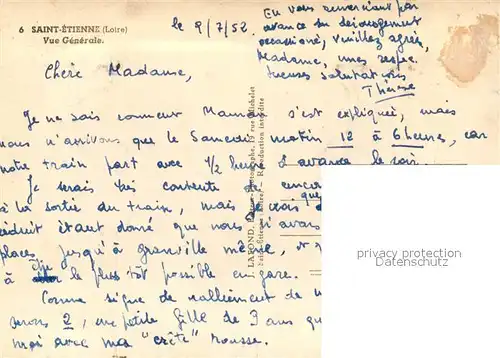 6 SAINT-ÉTIENNE (Loire)
Vue Générale.
le 9/7/52
En vous remerciant par
avance du dérangement
occasionné, veuillez agréer,
Madame, mes respec-
tueuses salutations
Thérèse
Chère Madame,
Je ne sais comment Maman s'est expliquée, mais
nous n'arrivons que le Samedi matin 12 à 6 heures, car
notre train part avec 1/2 heure d'avance le soir.
Je serais très contente de
à la sortie du train, mais je crois que
étant donné que nous n'avons
places jusqu'à Granville même,
à le plus tôt possible en gare.
Comme signe de ralliement de
serons 2, une petite fille de 3 ans
moi avec ma "crête" rousse.
J. LAFOND, 19 rue Michelet
Saint-Étienne Reproduction interdite
privacy protection
Datenschutz